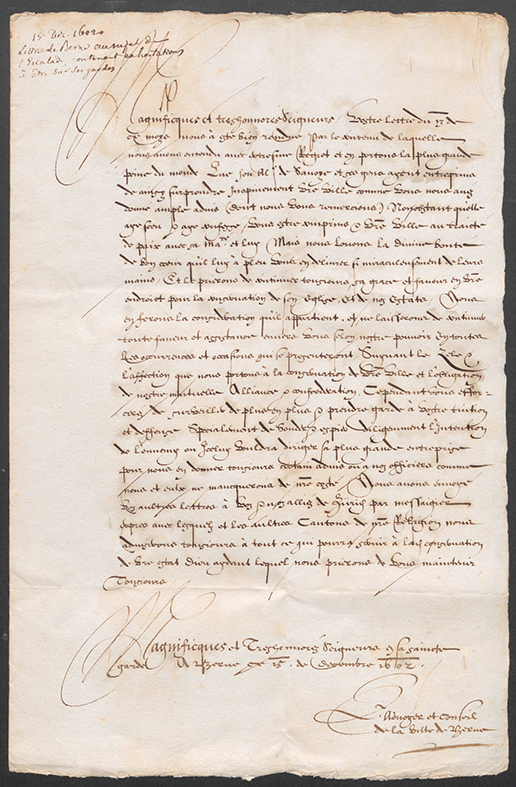 15 Déc. 1602.
Lettre de Berne au sujet de
l'Escalade, contenant exhortations
à être sur ses gardes
Magnificques et treshonnores Seigneurs, Vostre lettre du 13 de
ce moys nous a esté bien rendue, Par le contenu de laquelle
nous avons entendu avec tresgrand Regret et en portons la plus grande
peine du monde Que son Al. de Savoye et ses gens ayent entreprins
de ainsy surprendre Inopinement Vre Ville comme vous nous avez
donné ample advis (dont nous vous remercions)
de paix avec sa Ma.té et luy Mais nous Louons la divine bonté
de bon cœur qu'il luy a pleu vous en delivrer si miraculeusement de leurs
mains, Et le prierons de continuer tousiours sa grace et faveur en Vre
endroict pour la conservation de son Eglise et de vos Estats, Nous
en ferons la consideration qu'il appartient, et ne laisserons de continuer
toute faveur et assistance envers vous selon nostre pouvoir en toutes
les occurrences et occasions qui se presenteront Suyvant le Zele &
l'affection que nous portons à la conservation de Vre Ville et l'obligation
de nostre mutuelle Alliance & confederation, Cependant vous effor-
cerez de surveiller de plus en plus & prendre garde à Vostre tuition
et deffense Specialement de sonder & espier diligemment l'Intention
de l'ennemy ou Icelluy vouldra diriger sa plus grande entreprise
pour nous en donner tousiours certain advis ou a nos officiers comme
nous et eulx ne manquerons de nre costé, Nous avons envoyé
voz aultres lettres à voz & nos alliés de Zürich par messaigier
expres avec lesquels et les aultres Cantons de nre Religion nous
adviserons tousiours à tout ce qui pourra servir à la conservation
de Vre estat Dieu aydant lequel nous prierons de vous maintenir
Tousiours
Magnificques et Treshonnores Seigneurs en sa saincte
garde A Berne ce 15. de Decembre 1602.
L'Advoyer et Conseil
de la Ville de Berne